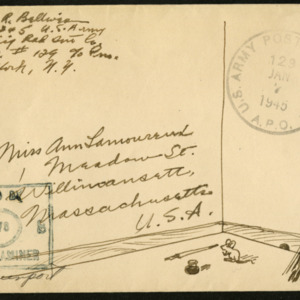 R. Bellwin
245 U.S. Army
Sig Rad
# 129 % Pm.
York, N.Y.
U.S. ARMY POST
129
JAN
1945
A.P.O.
Miss Ann Lamoureux
1 Meadow St.
Willimansett,
Massachusetts
U.S.A.
EXAMINER